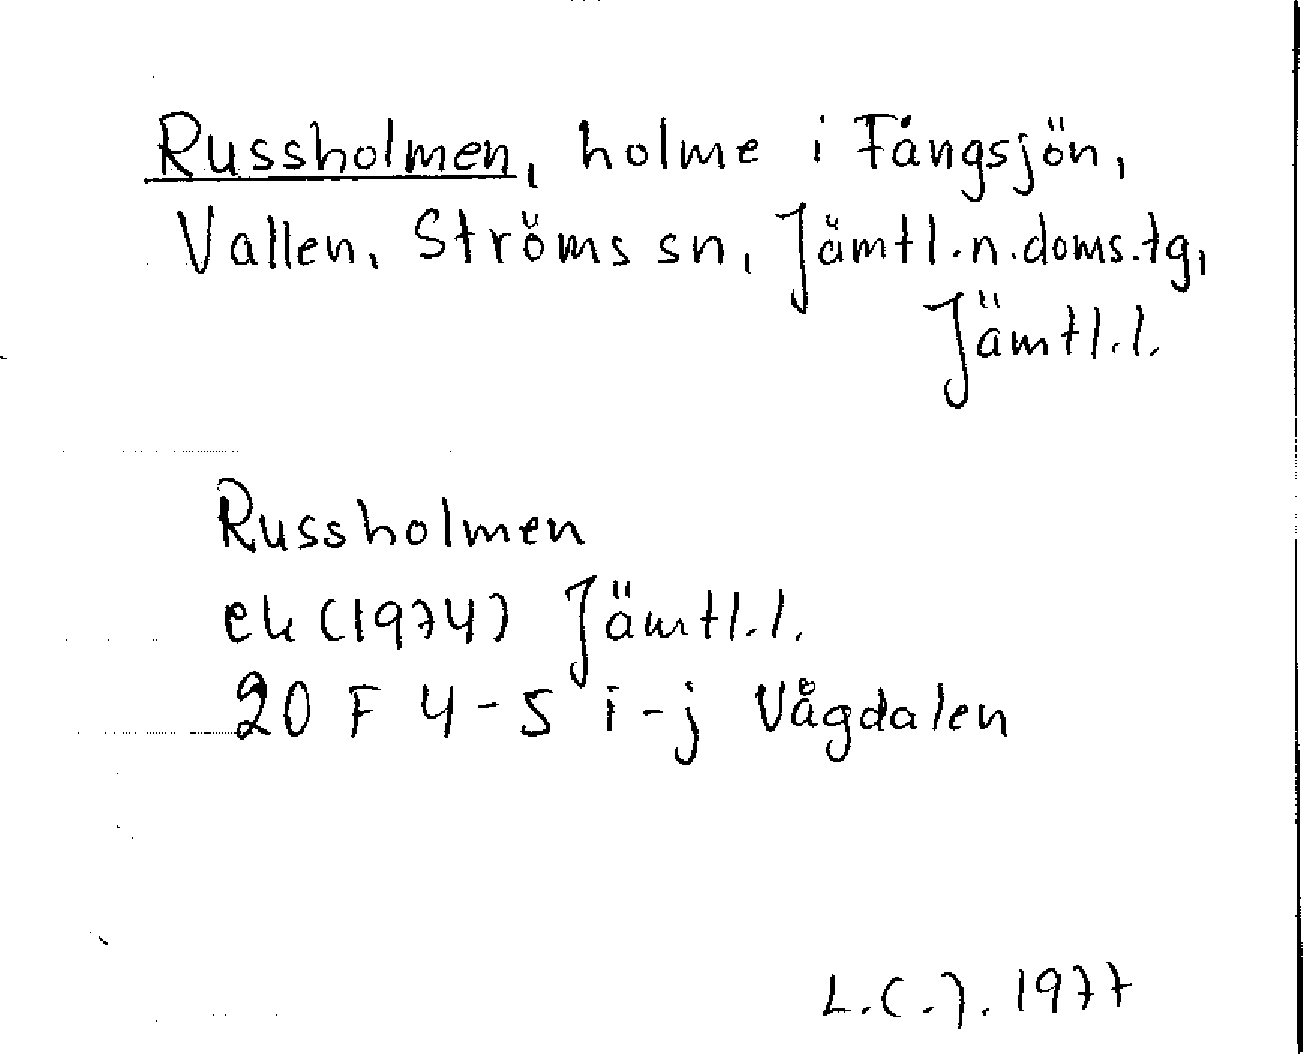 Russholmen, holme i Fångsjön,
Vallen, Ströms sn, Jämtl.n.doms.tg,
Jämtl.l.
Russholmen
ek (1974) Jämtl.l.
20 F 4-5 i-j Vågdalen
L.C.J. 1977